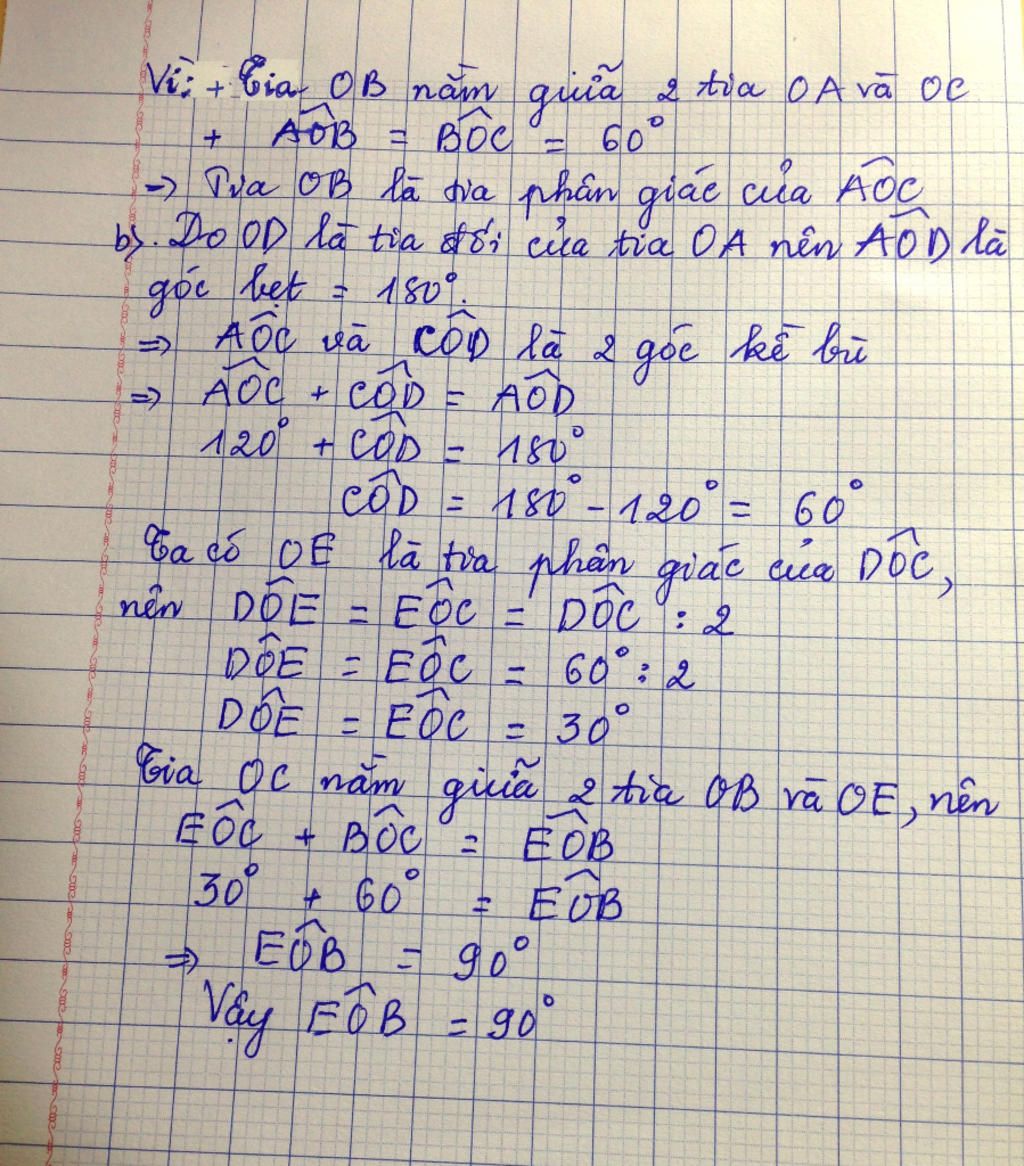 Vì: + Tia OB nằm giữa 2 tia OA và OC
+ AÔB = BÔC = 60°
=> Tia OB là tia phân giác của AÔC
b). Do OD là tia đối của tia OA nên AÔD là
góc bẹt = 180°.
=> AÔC và CÔD là 2 góc kề bù
=> AÔC + CÔD = AÔD
120° + CÔD = 180°
CÔD = 180° - 120° = 60°
Ta có OE là tia phân giác của DÔC,
nên DÔE = EÔC = DÔC : 2
DÔE = EÔC = 60° : 2
DÔE = EÔC = 30°
Tia OC nằm giữa 2 tia OB và OE, nên
EÔC + BÔC = EÔB
30° + 60° = EÔB
=> EÔB = 90°
Vậy EÔB = 90°